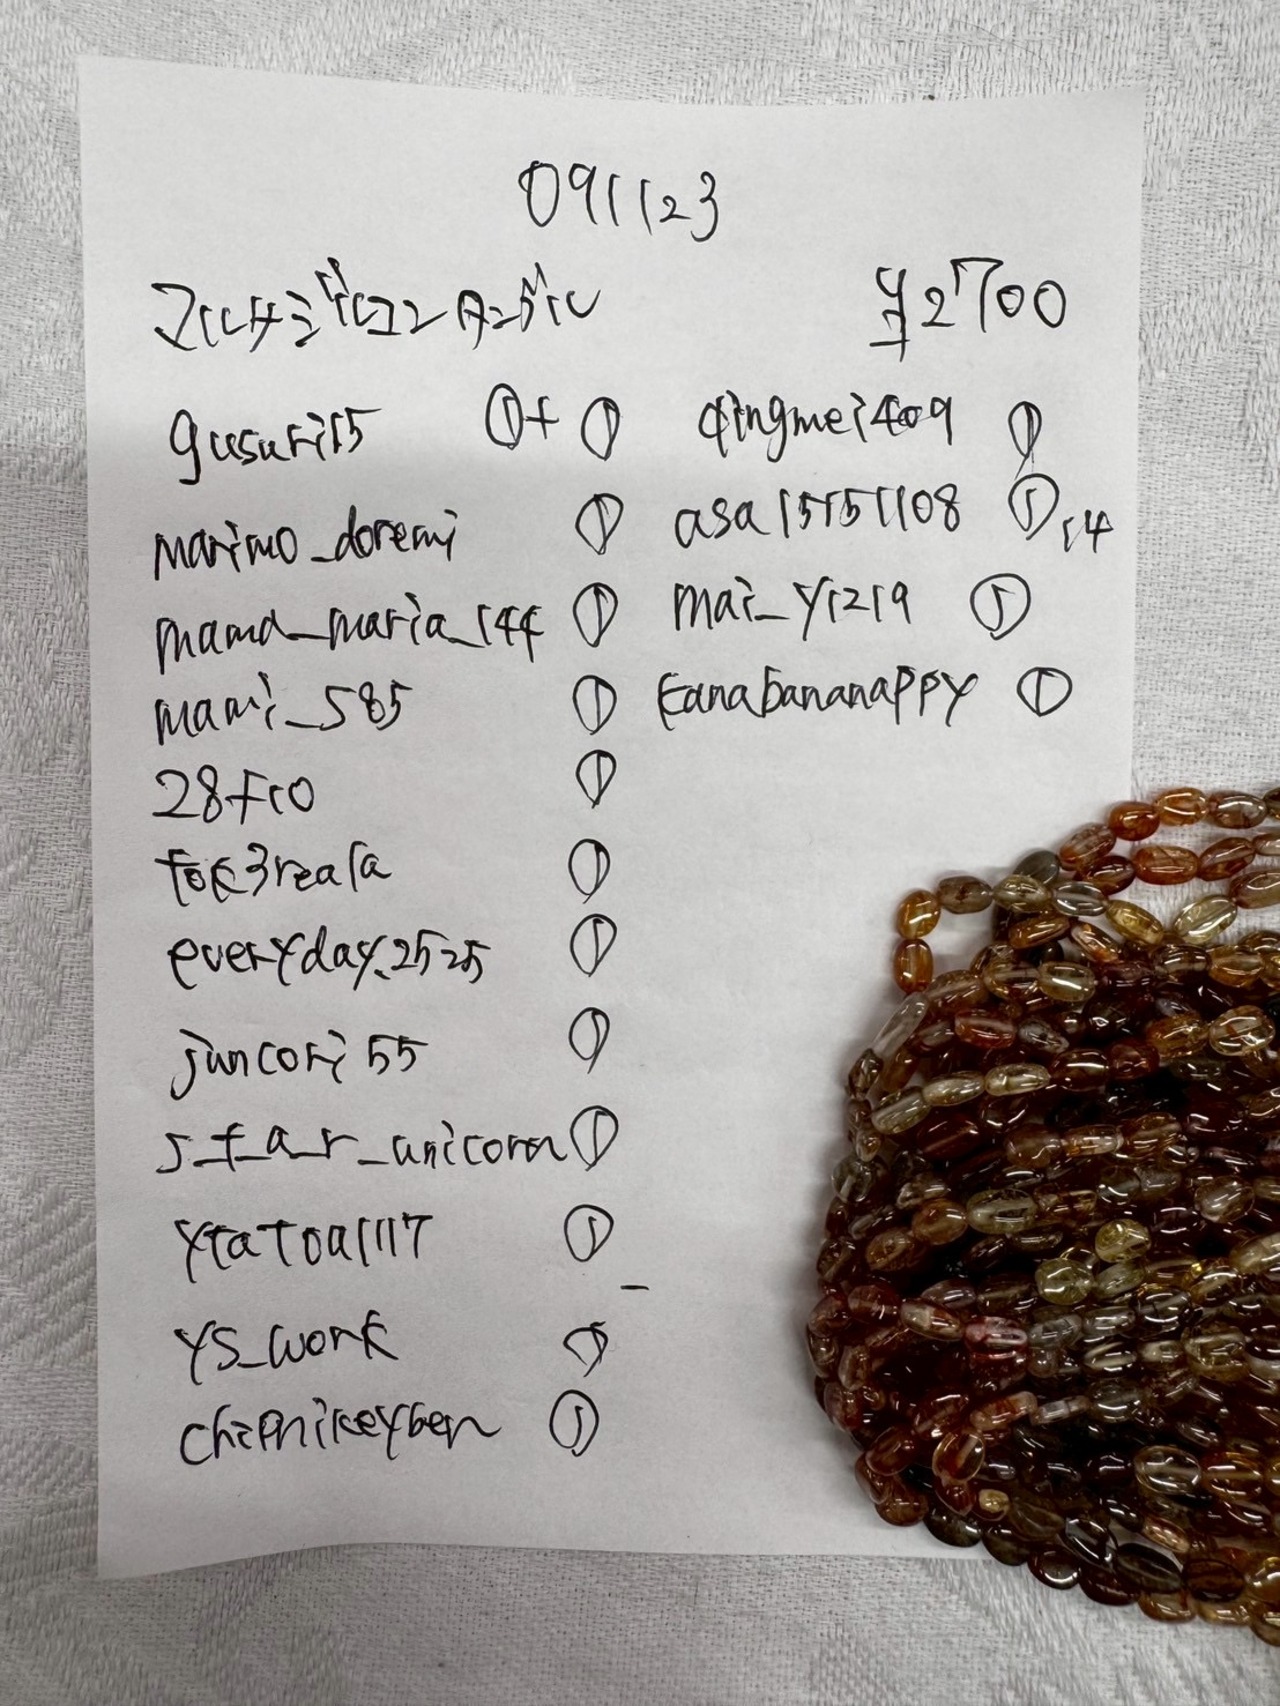 091123
¥2700
gusuri15 ①+①
marimo_doremi ①
mama_maria_144 ①
mami_585 ①
28fio ①
tok3reala ①
everyday.2525 ①
juncori55 ①
s_t_a_r_unicorn ①
ytatoa1117 ①
ys_work ①
①
qingmei409 ①
asa15151108 ①,14
mai_y1219 ①
kanabananappy ①